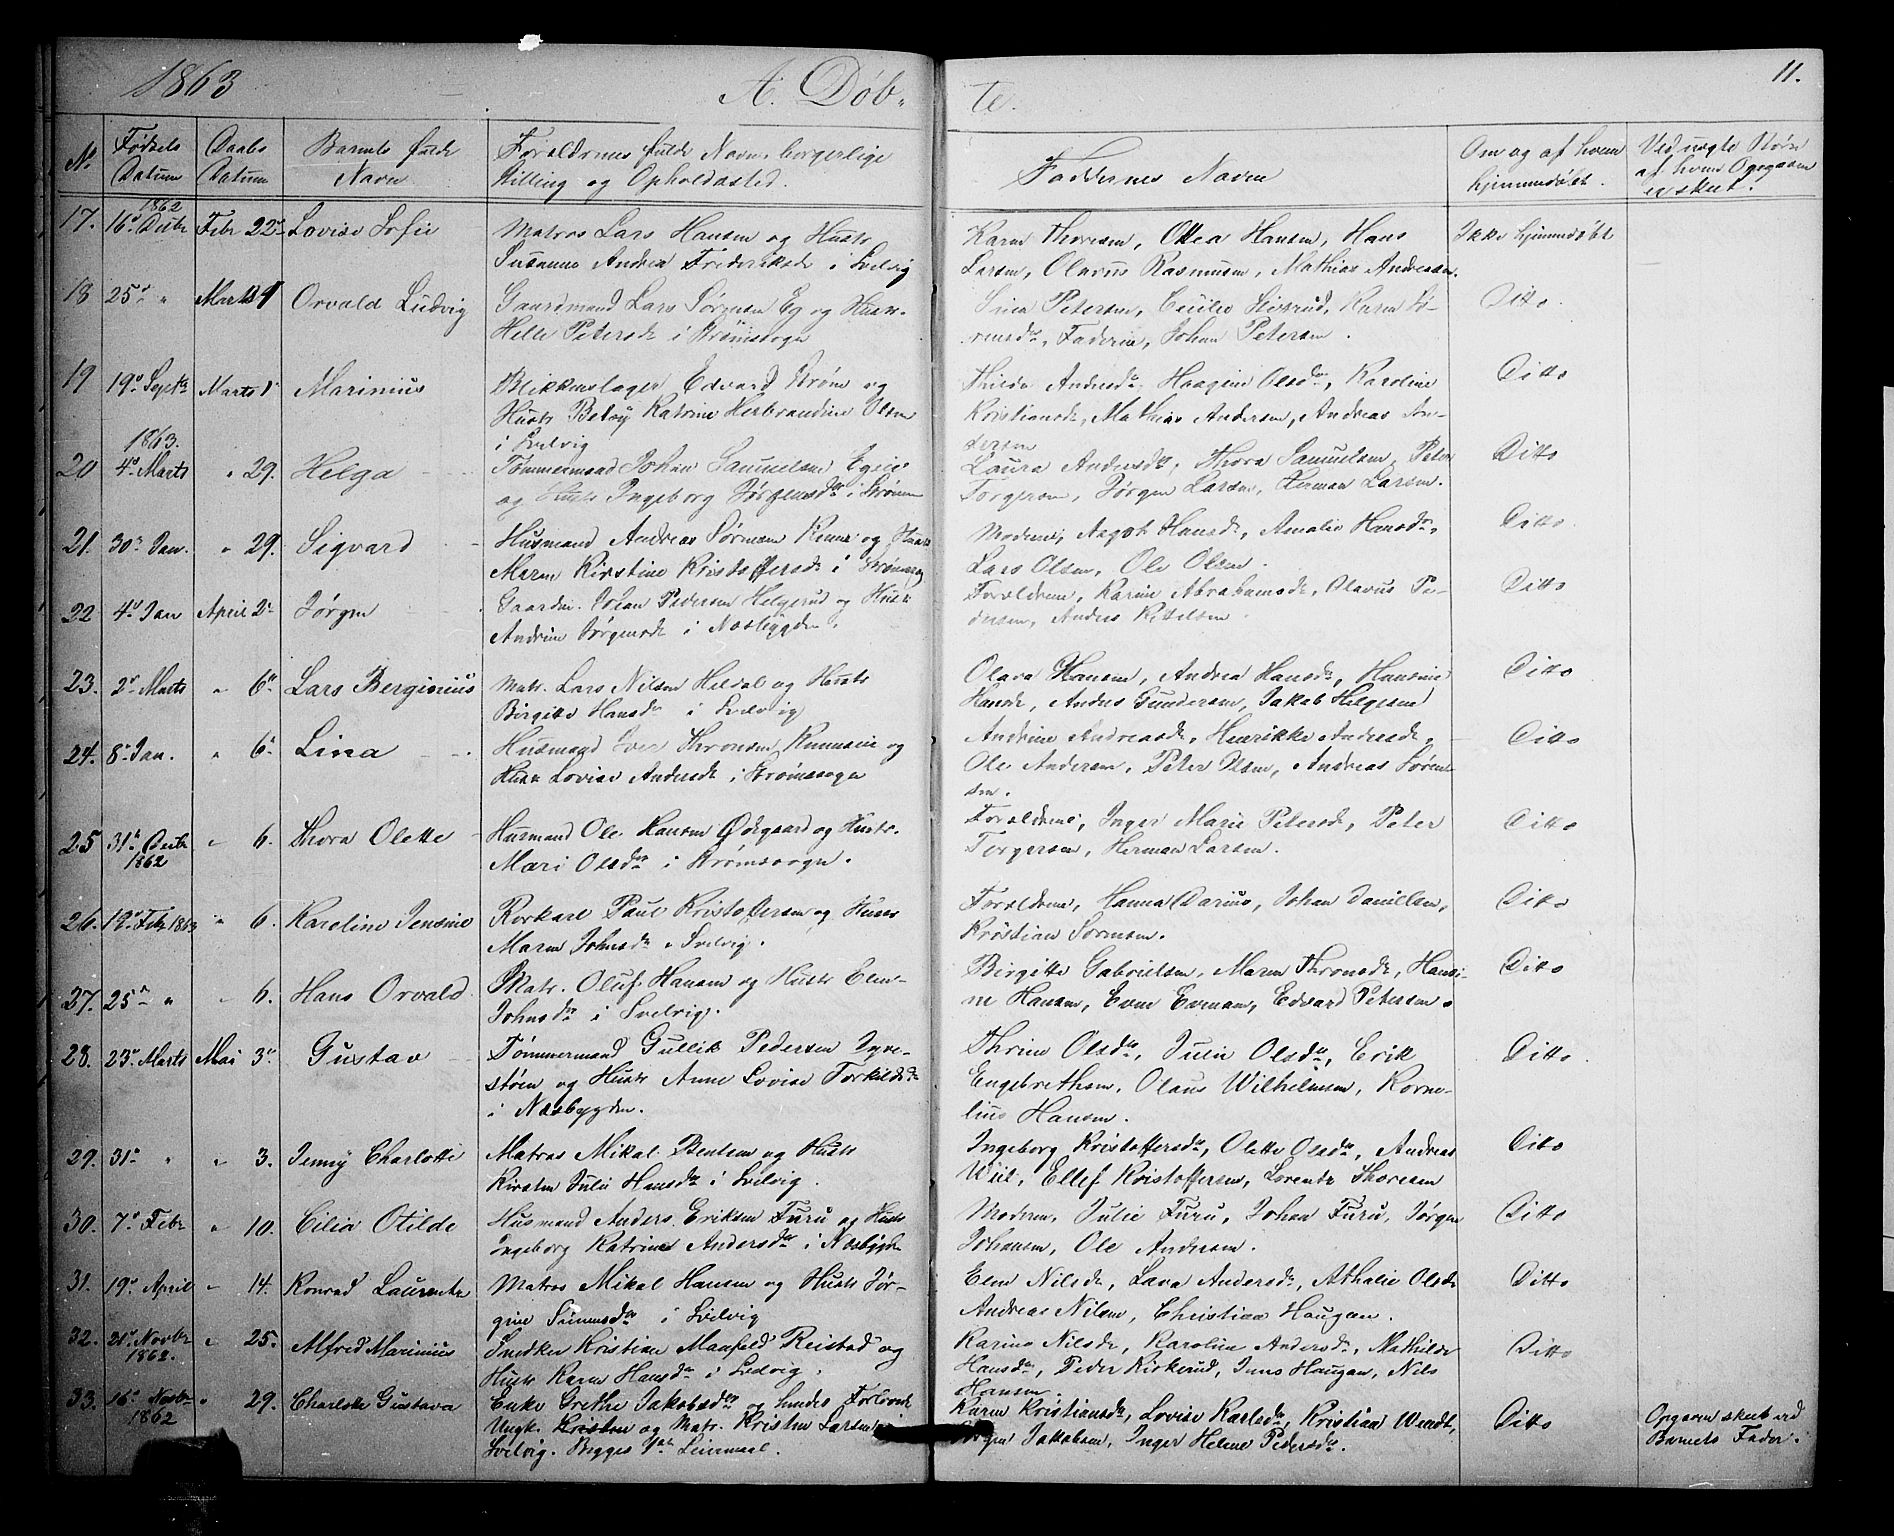 1863
A. Døb-
te.
11.
N.
Fødsels
Datum
Daabs
Datum
Barnets fulde
Navn
Forældrenes fulde Navn, borgerlige
Stilling og Opholdssted.
Faddernes Navne
Om og af hvem
hjemmedøbt.
Ved uægte Børn
af hvem Opgaven
er skeet.
1862
17. 16de Decbr Febr 22de Lovise Sofie
Matros Lars Hansen og Hustr
Susanne Andrea Frederiksd i Svelvig
Karen Thoresen, Ottea Hansen, Hans
Larsen, Olavus Rasmusen, Mathias Andresen.
Ikke hjemmedøbt
18 25de " Marts Orvald Ludvig
Gaardmand Lars Sørensen Eg og Hustr.
Helle Petersd i Strømssogn
Petersen, Cecilie Sivrud, Karen Sø-
rensdr, Faderen, Johan Petersen.
Ditto.
19 19de Septbr Marts 1 Marinius
Blikkenslager Edvard Strøm og
Hustr Betsy Katrine Herbrandine Olsen
i Svelvig
Thilda Andersdr, Haagine Olsdr, Karoline
Kristiansd, Mathias Andersen, Andreas An-
dersen
Ditto
1863.
20 4de Marts " 29. Helga
Tømmermand Johan Samuelsen
og Hustr Ingeborg Jørgensdr i Strømm
Laura Andersdr, Thora Samuelsen, Peter
Torgersen, Jørgen Larsen, Herman Larsen.
Ditto
21. 30te Jan. " 29. Sigvard
Husmand Andreas Sørensen og Hustr
Maren Kirstine Kristoffersd i Strømssog
Moderen, Aagot Hansd, Amalie Hansdr,
Lars Olsen, Ole Olsen.
Ditto.
22 4de Jan April 2de Jørgen
Gaardm. Johan Pedersen Helgerud og Hustr
Andrine Jørgensd i Næsbygden.
Forældrene, Karine Abrahamsd, Olavus Pe-
dersen, Anders Kittelsen.
Ditto
23. 2de Marts " 6te Lars Berginius
Matr. Lars Nilsen Heldal og Hustr
Birgitte Hansdr i Svelvig
Olava Hansen, Andrea Hansdr, Hansine
Hansd, Anders Gundersen, Jakob Helgesen
Ditto
24. 8de Jan. " 6te Lina
Husmand Iver Thronsen og
Hustr Lovise Andersd i Strømssogn
Andrine Andreasd, Henrikke Andersd,
Ole Andersen, Peter Olsen, Andreas Søren-
sen.
Ditto
25 31te Decbr " 6. Thora Olette
1862
Husmand Ole Hansen Ødegaard og Hustr.
Mari Olsdr i Strømssogn.
Forældrene, Inger Marie Petersd, Peter
Torgersen, Herman Larsen.
Ditto
26. 19de Febr 1863 " 6. Karoline Jensine
Rorkarl Paul Kristoffersen og Hustr
Maren Johnsdr i Svelvig.
Forældrene, Hanna Darius, Johan Danielsen,
Kristian Sørensen.
Ditto
27. 25de " " 6. Hans Orvald
Matr. Oluf Hansen og Hustr Elen
Johnsdr i Svelvig.
Birgitte Gabrielsen, Maren Thronsd, Hansi-
ne Hansen, Even Evensen, Edvard Petersen.
Ditto
28. 23de Marts Mai 3de Gustav
Tømmermand Gullik Pedersen Dyve-
støen og Hustr Anne Lovise Torkildsdr
i Næsbygden.
Thrine Olsdr, Julie Olsdr, Erik
Engebrethsen, Olaus Wilhelmsen, Korne-
lius Hansen.
Ditto.
29. 31te " " 3. Jenny Charlotte
Matros Mikal Bentsen og Hustr
Kirsten Julie Hansdr i Svelvig.
Ingeborg Kristoffersdr, Olette Olsdr, Andreas
Wiil, Ellef Kristoffersen, Lorentz Thoresen
Ditto
30. 7de Febr " 10. Cilia Otilde
Husmand Anders Eriksen Furu og Hustr
Ingeborg Katrine Andersdr i Næsbygden
Moderen, Julie Furu, Johan Furu, Jørgen
Johansen, Ole Andersen.
Ditto
31. 19de April " 14. Konrad Laurentz
Matros Mikal Hansen og Hustr Jør-
gine Simensdr i Svelvig
Elen Nilsd, Lava Andersd, Athalie Olsd
Andreas Nilsen, Christian Haugan.
Ditto
32. 21de Novbr " 25. Alfred Marinius
1862.
Snedker Kristian Manfeld Reistad og
Hustr Karen Hansdr i Svelvig.
Karine Nilsd, Karoline Andersdr, Mathilde
Hansdr, Peder Kirkerud, Jens Haugan, Nils
Hansen.
Ditto
33. 16de Novbr " 29. Charlotte Gustava
1862
Enke Grethe Jakobsdr og hendes Forlovede
Ungk. Kristen og Matr. Kristen Larsen i
Svelvig. Begges 1ste Leiermaal.
Karen Kristiansdr, Lovise Karlsdr, Kristian Wendt,
Jørgen Jakobsen, Inger Helene Pedersdr.
Ditto
Opgaven skeet ved
Barnets Fader.